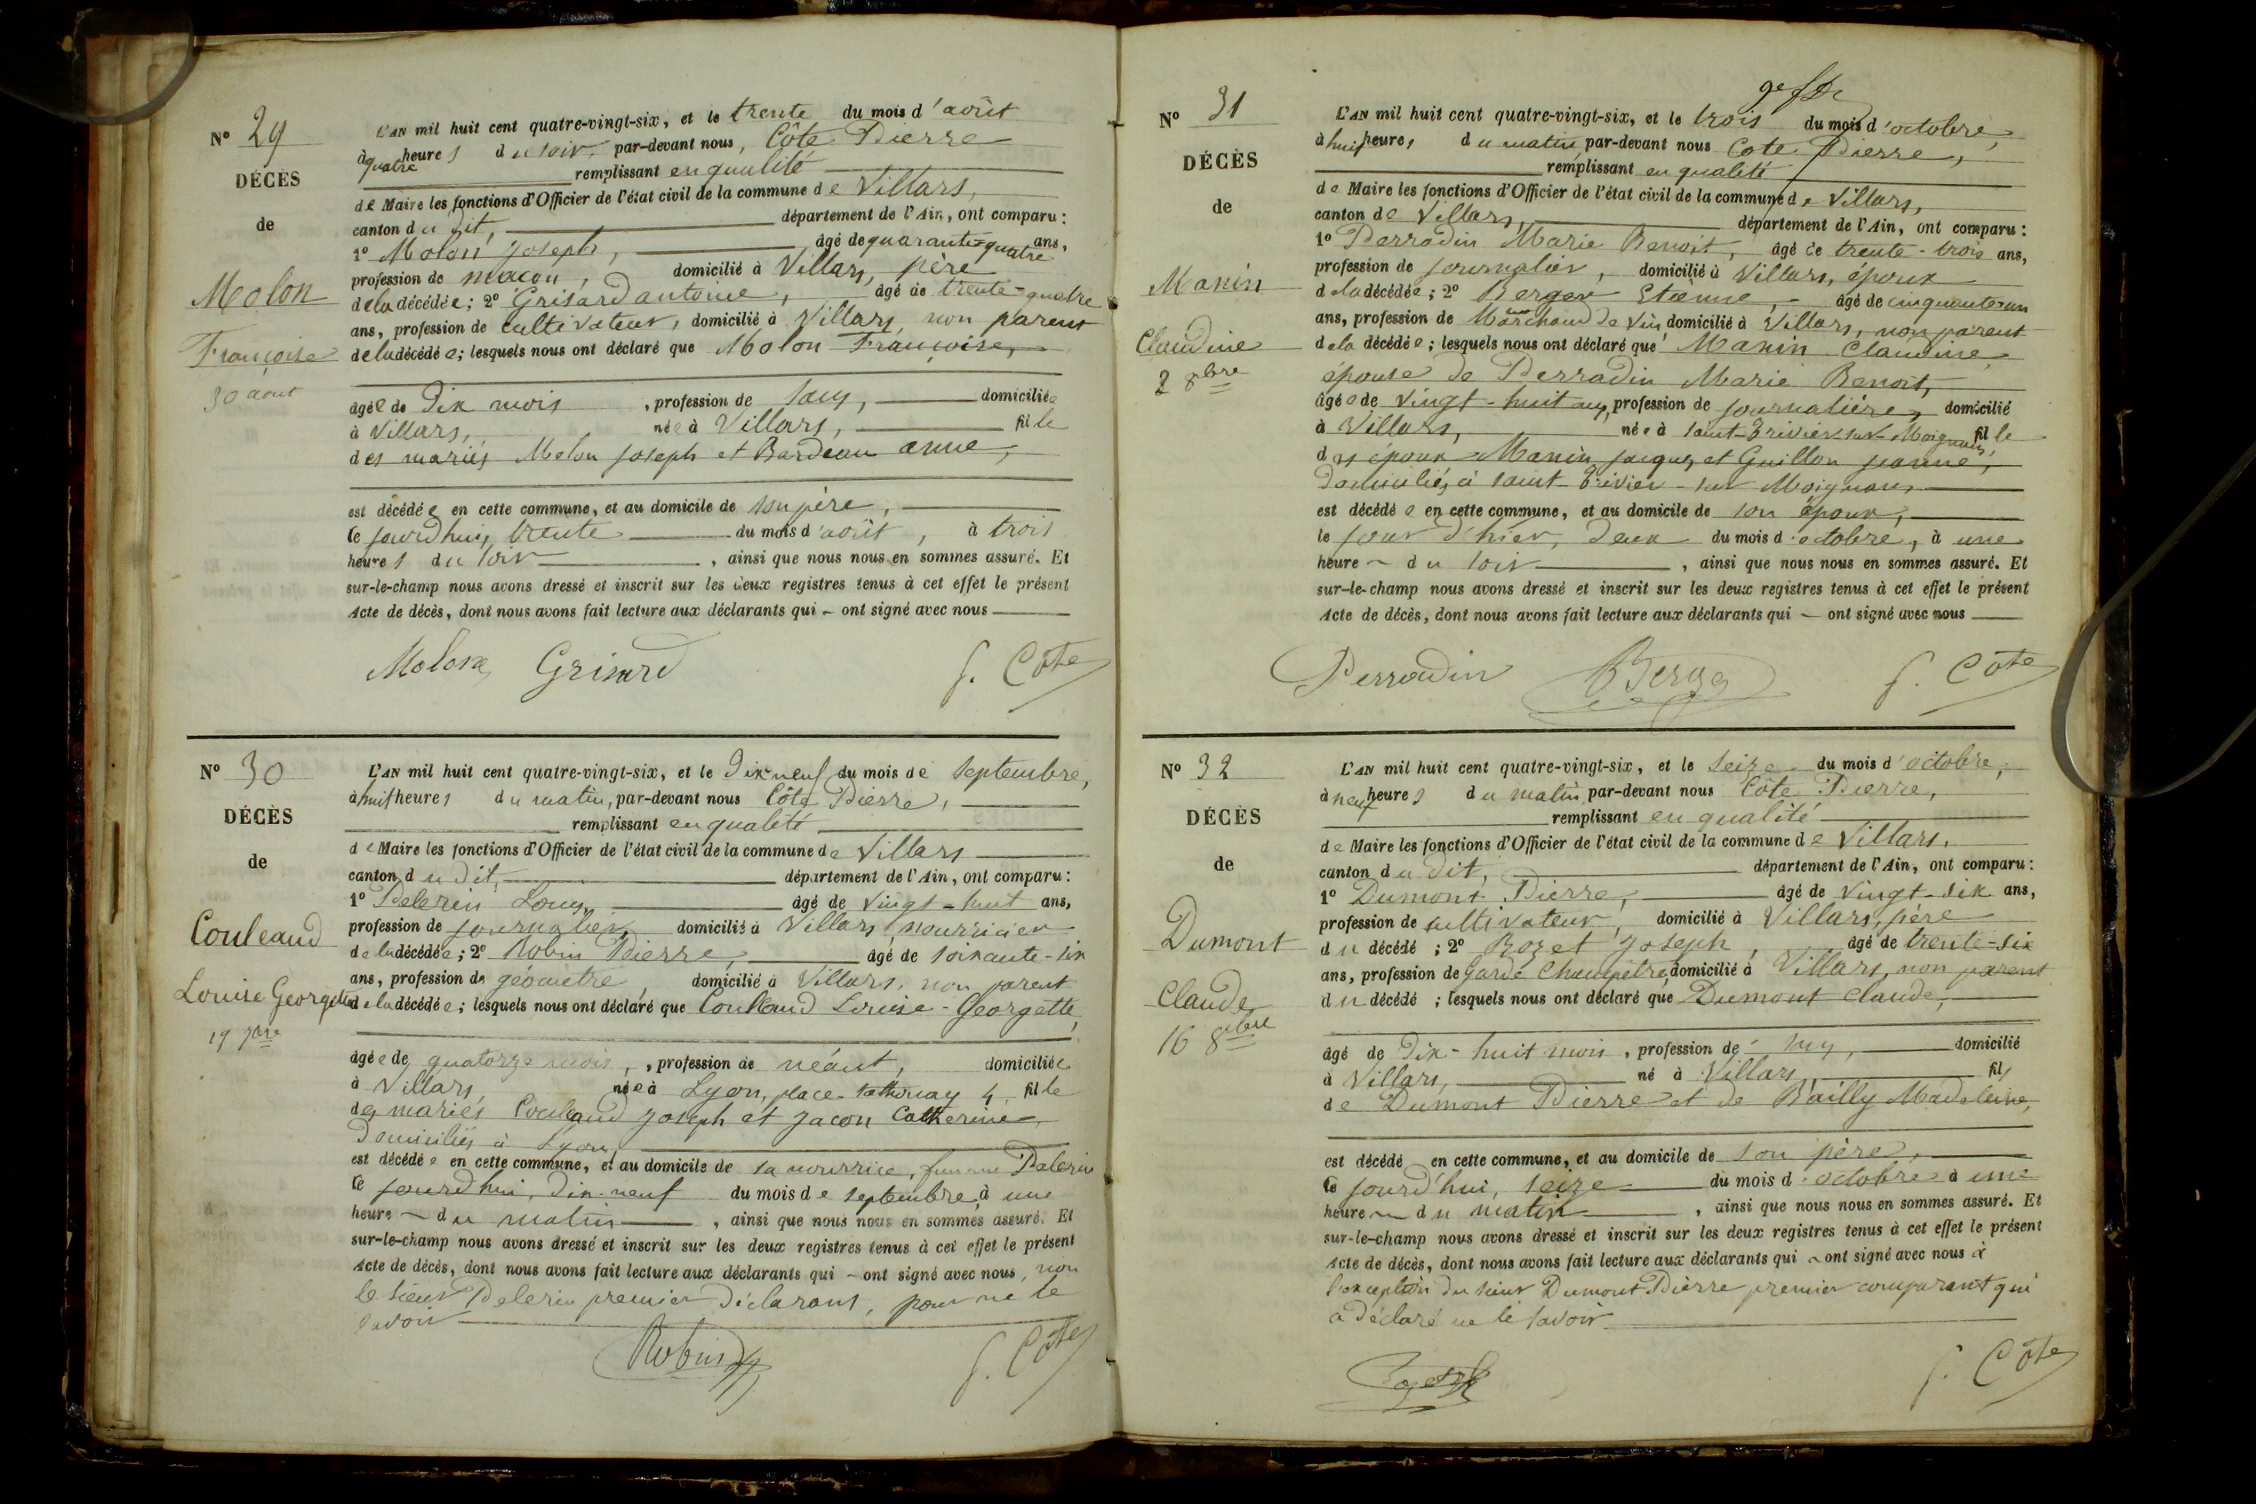 Nº 29
DÉCÈS
de
Molon
Françoise
30 aout
L'AN mil huit cent quatre-vingt-six, et le trente du mois d'août
à quatre heures du soir, par-devant nous, Côte Pierre
remplissant en qualité
de Maire les fonctions d'Officier de l'état civil de la commune de Villars,
canton du dit, département de l'Ain, ont comparu :
1º Molon Joseph, âgé de quarante-quatre ans,
profession de maçon, domicilié à Villars, père
de la décédée; 2º Grisard antoine, âgé de trente-quatre
ans, profession de cultivateur, domicilié à Villars, non parent
de la décédée; lesquels nous ont déclaré que Molon Françoise,
âgée de Dix mois, profession de sans, domiciliée
à Villars, née à Villars, fille
des mariés Molon Joseph et Bardeau anne,
est décédée en cette commune, et au domicile de son père,
le jourd'hui, trente du mois d'août, à trois
heures du soir, ainsi que nous nous en sommes assuré. Et
sur-le-champ nous avons dressé et inscrit sur les deux registres tenus à cet effet le présent
Acte de décès, dont nous avons fait lecture aux déclarants qui ont signé avec nous
Molon Grisard P. Côte
Nº 30
DÉCÈS
de
Couleaud
Louise Georgette
19 7bre
L'AN mil huit cent quatre-vingt-six, et le Dix-neuf du mois de septembre,
à huit heures du matin, par-devant nous Côte Pierre,
remplissant en qualité
de Maire les fonctions d'Officier de l'état civil de la commune de Villars
canton du dit, département de l'Ain, ont comparu :
1º Pelerin Louis, âgé de vingt-huit ans,
profession de journalier, domicilié à Villars, nourricier
de la décédée; 2º Robin Pierre, âgé de soixante-six
ans, profession de géomètre, domicilié à Villars, non parent
de la décédée; lesquels nous ont déclaré que Couleaud Louise-Georgette,
âgée de quatorze mois, profession de néant, domiciliée
à Villars, née à Lyon, place 4, fille
des mariés Couleaud Joseph et Jacon Catherine,
Domiciliés à Lyon,
est décédée en cette commune, et au domicile de sa nourrice, femme Pelerin
le jourd'hui, Dix-neuf du mois de septembre, à une
heure du matin, ainsi que nous nous en sommes assuré. Et
sur-le-champ nous avons dressé et inscrit sur les deux registres tenus à cet effet le présent
Acte de décès, dont nous avons fait lecture aux déclarants qui ont signé avec nous, non
le sieur Pelerin premier Déclarant, pour ne le
savoir
Robin P. Côte
Nº 31
DÉCÈS
de
Manin
Claudine
2 8bre
L'AN mil huit cent quatre-vingt-six, et le trois du mois d'octobre,
à huit heures du matin, par-devant nous Cote Pierre,
remplissant en qualité
de Maire les fonctions d'Officier de l'état civil de la commune de Villars,
canton de Villars, département de l'Ain, ont comparu :
1º Perradin Marie Benoit, âgé de trente-trois ans,
profession de journalier, domicilié à Villars, époux
de la décédée; 2º Berger Etienne, âgé de cinquante-un
ans, profession de Marchand de vin, domicilié à Villars, non parent
de la décédée; lesquels nous ont déclaré que Manin Claudine,
épouse de Perradin Marie Benoit,
âgée de vingt-huit ans, profession de journalière, domicilié
à Villars, née à saint-Trivier-sur-Moignans, fille
des époux Manin Jacques et Guillon Jeanne,
Domiciliés à saint-Trivier-sur-Moignans
est décédée en cette commune, et au domicile de son époux,
le jour d'hier, deux du mois d'octobre, à une
heure du soir, ainsi que nous nous en sommes assuré. Et
sur-le-champ nous avons dressé et inscrit sur les deux registres tenus à cet effet le présent
Acte de décès, dont nous avons fait lecture aux déclarants qui ont signé avec nous
Perradin Berger P. Côte
Nº 32
DÉCÈS
de
Dumont
Claude
16 8bre
L'AN mil huit cent quatre-vingt-six, et le seize du mois d'octobre,
à neuf heures du matin, par-devant nous Côte Pierre,
remplissant en qualité
de Maire les fonctions d'Officier de l'état civil de la commune de Villars,
canton du dit, département de l'Ain, ont comparu :
1º Dumont Pierre, âgé de vingt-six ans,
profession de cultivateur, domicilié à Villars, père
du décédé; 2º Rozet Joseph, âgé de trente-six
ans, profession de Garde Champêtre, domicilié à Villars, non parent
du décédé; lesquels nous ont déclaré que Dumont claude,
âgé de Dix-huit mois, profession de sans, domicilié
à Villars, né à Villars fils
de Dumont Pierre et de Bailly Madeleine,
est décédé en cette commune, et au domicile de son père,
le jourd'hui, seize du mois d'octobre à une
heure du matin, ainsi que nous nous en sommes assuré. Et
sur-le-champ nous avons dressé et inscrit sur les deux registres tenus à cet effet le présent
Acte de décès, dont nous avons fait lecture aux déclarants qui ont signé avec nous à
l'exception du sieur Dumont Pierre premier comparant qui
a déclaré ne le savoir
Rozet P. Côte